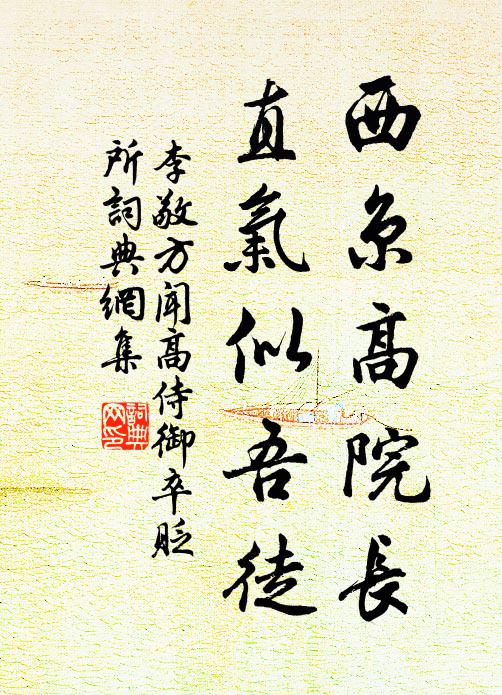 西京高院長
直氣似吾徒
李敬方聞高侍御卒貶
所詞典網集
詞典
网印